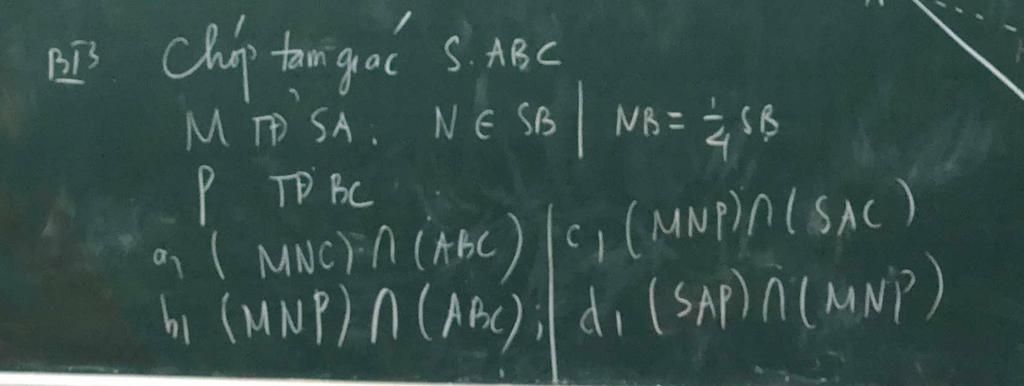 BT3 Chóp tam giác S.ABC
M TĐ SA. N ∈ SB | NB = 1/4 SB
P TĐ BC
a, (MNC) ∩ (ABC) | c, (MNP) ∩ (SAC)
b, (MNP) ∩ (ABC); | d, (SAP) ∩ (MNP)